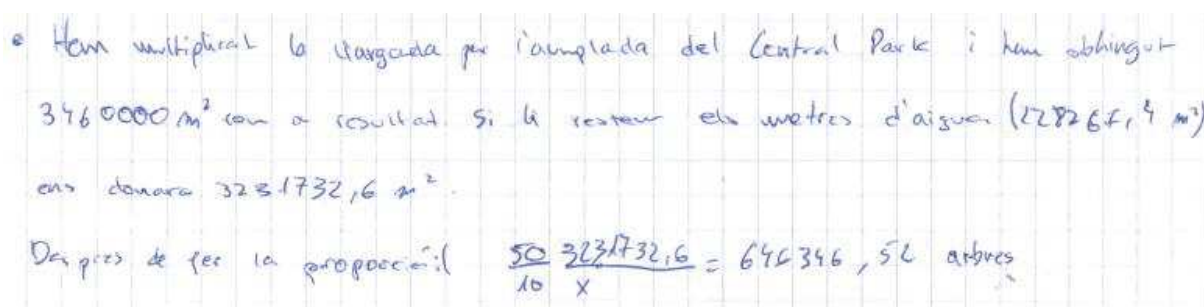 • Hem multiplicat la llargada per l'amplada del Central Park i hem obtingut
3460000 m² com a resultat. Si li restem els metres d'aigua (228267,4 m²)
ens donara 3231732,6 m².
Despres de fer la proporció:( 50/10 3231732,6/x = 646346,52 arbres